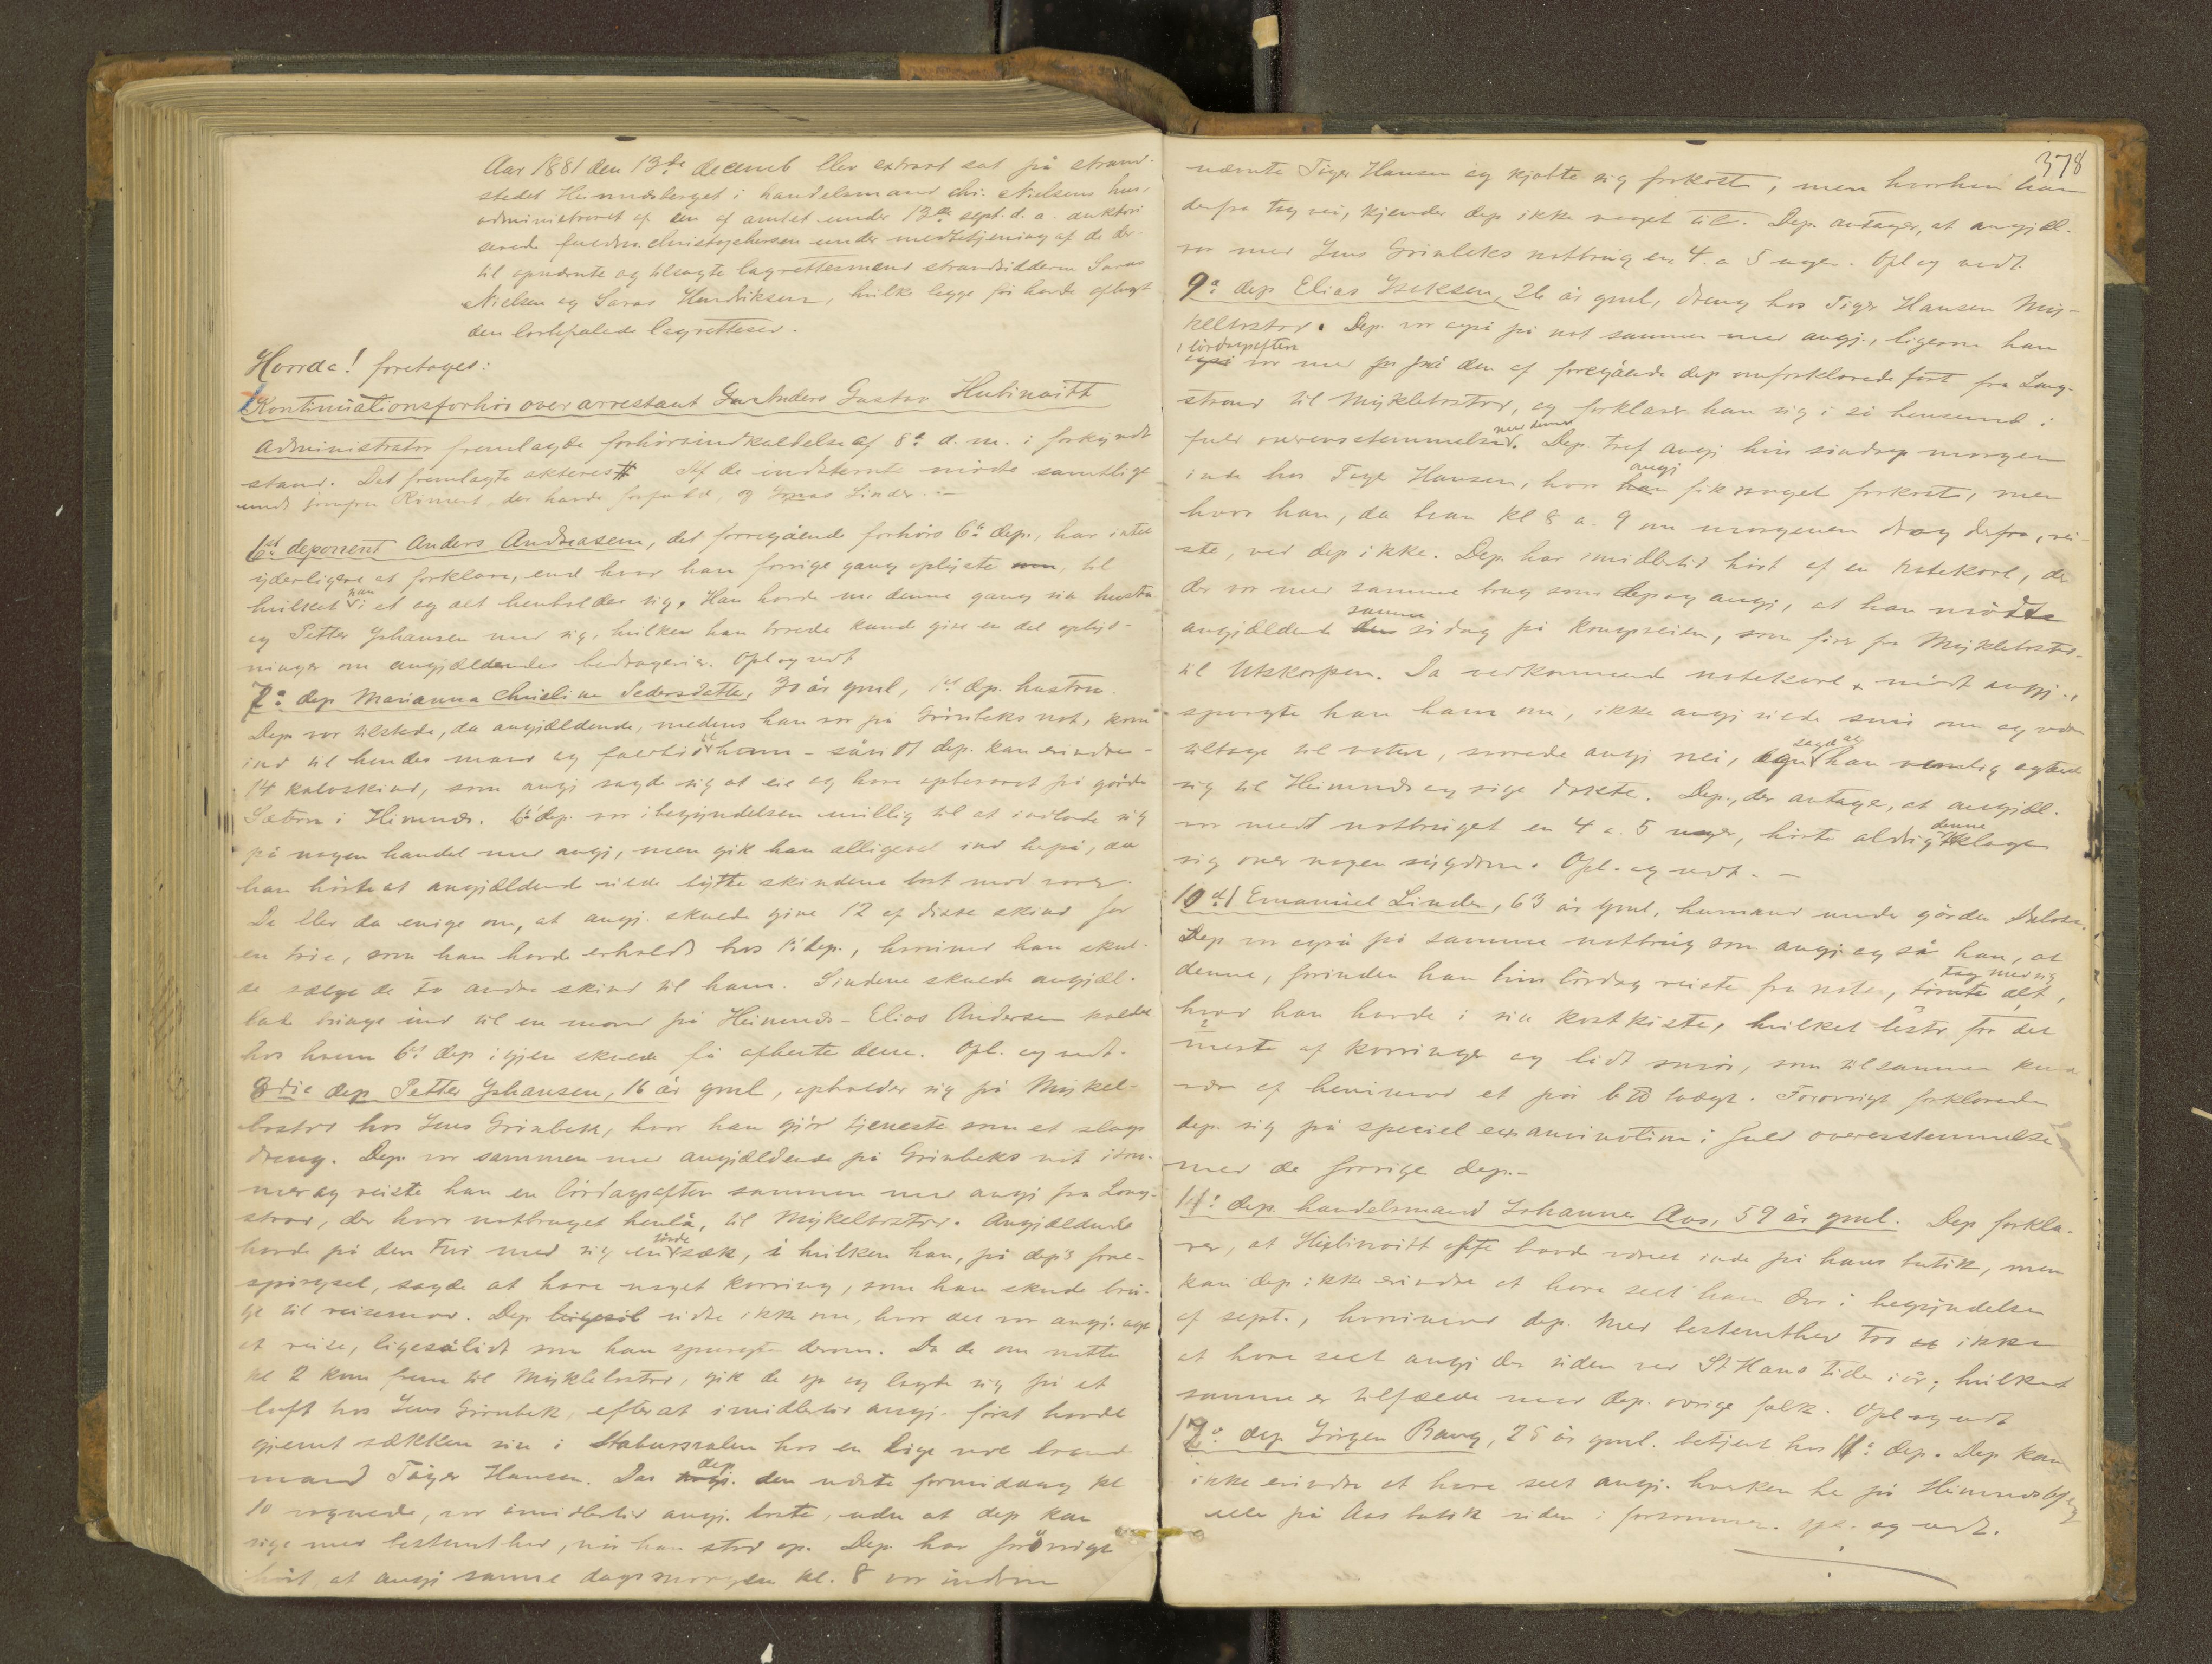 Aar 1881 den 13de decemb blev extraret sat på strand-
stedet Heimnesberget i handelsmand Chr. Nielsens hus,
administreret af den af amtet under 13de sept. d. a. auktori-
serede fuldm. Christophersen under medbetjening af de der-
til opnævnte og tilsagte lagrettesmænd strandsidderne Lares
Nielsen og Lares Hendriksen, hvilke begge før havde aflagt
den lovbefalede lagretteser.
Hvorda! foretoges:
Kontinuationsforhör over arrestant Anders Gustav Hubinoitt
Administrator fremlagde forhörsindkaldelse af 8de d. m. i forkyndt
stand. Det fremlagte akteres # Af de indstevnte mödte samtlige
undt. jomfru Rimert, der havde forfald, og Jonas Linder. —
6te deponent Anders Andreasen, det foregående forhörs 6te dep., har intet
yderligere at forklare, end hvor han forrige gang oplyste, til
hvilket han i et og alt henholder sig. Han havde nu denne gang sin hustru
og Petter Johansen med sig, hvilken han troede kunde give en del oplys-
ninger om angjældendes bedragerier. Opl og vedt
7de dep Marianna Christine Pedersdatter, 30 år gml, 1st dep. hustru.
Dep. var tilstede, da angjældende, medens han var på Grönbeks not, kom
ind til hendes mand og falbö til ham - såvidt dep. kan erindre -
14 kalveskind, som angj sagde sig at eie og have opbevaret på gården
Sætren i Hemnes. 6te dep. var i begyndelsen uvillig til at indlade sig
på nogen handel med angj, men gik han alligevel ind herpå, da
han hörte at angjældende vilde bytte skindene bort mod varer.
De blev da enige om, at angj. skulde give 12 af disse skind for
en tröie, som han havde erholdt hos 1ste dep., hvorimod han skul-
de sælge de to andre skind til ham. Skindene skulde angjæl-
bringe ind til en mand på Heimnes - Elias Andersen kaldet
hos hvem 6te dep igjen skulde få afhente dem. Opl. og vedt.
8die dep Petter Johansen, 16 år gml, opholder sig på Mykel-
bostad hos Jens Grönbek, hvor han gjör tjeneste som et slags
dreng. Dep. var sammen med angjældende på Grönbeks not i som-
mer og reiste han en lördagsaften sammen med angj fra Lang-
strand, der hvor notbruget henlå, til Mykelbostad. Angjældende
havde på den tur med sig en sæk, i hvilken han, på dep's fore-
spörgsel, sagde at have noget korring, som han skulde bru-
ge til reisemad. Dep. vidste ikke om, hvor det var angj. agte
at reise, ligesålidt som han spurgte derom. Da de om natten
kl 2 kom frem til Myklebostad, gik de op og lagde sig på et
loft hos Jens Grönbek, efterat imidlertid angj. först havde
gjemt sækken sin i Stabursvalen hos en lige ved boende
mand Tiger Hansen. Da dep. den næste formiddag kl
10 vognede, var imidlertid angj. borte, uden at dep kan
sige med bestemthed, når han stod op. Dep. har forövrigt
hört at angj samme dags morgen kl. 8 var indom
378
nævnte Tiger Hansen og kjöbte sig frokost, men hvorhen han
derfra tog vei, kjender dep ikke noget til. Dep. antager, at angjæl-
var med Jens Grönbeks notbrug en 4. a 5 uger. Opl og vedt.
9de dep Elias Iseksen, 26 år gml, dreng hos Tiger Hansen Myk-
kelbostad. Dep. var også på not sammen med angj., ligesom han
lördagsaften
var med på den af foregående dep omforklarede fört fra Lang-
strand til Myklebostad, og forklarer han sig i så henseende i
fuld overensstemmelse med denne. Dep. traf angj hin söndag morgen
inde hos Tiger Hansen, hvor angj fik noget frokost, men
hvor han, da han kl 8 a. 9 om morgenen drog derfra, rei-
ste, ved dep ikke. Dep. har imidlertid hört af en notekarl, der
der var med samme brug som dep og angj, at han mödte
angjældende samme sidag på Kongsveien, som förer fra Myklebostad-
til Utskarpen. Da vedkommende notekarl mödt angj.,
spurgte han ham om, ikke angj vilde snu om og være
tilbage til noten, svarede angj nei, sagde at han agtede
sig til Heimnes og söge dokter. Dep., der antager, at angjæl-
var medt notbruget en 4 a. 5 uger, hörte aldrig denne klage
sig over nogen sygdom. Opl. og vedt. —
10de Emanuel Linder, 63 år gml, husmand under gården Dalosen.
Dep var også på samme notbrug som angj og så han, at
denne, forinden han hin lördag reiste fra noten, tog med sig alt,
hvad han havde i sin kostkiste, hvilket bestod for det
meste af korringer og lidt smör, som tilsammen kun
være af henimod et par b ℔ vægt. Forövrigt forklarede
dep. sig på speciel examination i fuld overensstemmelse
med de forrige dep. —
11te dep. handelsmand Johannes Aas, 59 år gml. Dep forkla-
rer, at Hubinoitt ofte havde været inde på hans butik, men
kan dep ikke erindre at have seet ham der i begyndelsen
af sept., hvorimod dep. med bestemthed tror ikke
at have seet angj der siden ved St Hans tider i år; hvilket
samme er tilfælde med dep. övrige folk. Opl og vedt
12te dep Jörgen Bang, 25 år gml. betjent hos 11te dep. Dep kan
ikke erindre at have seet angj. hverken her på Heimnesbjerg
eller på Aas butik siden i forsommer. opl. og vedt.